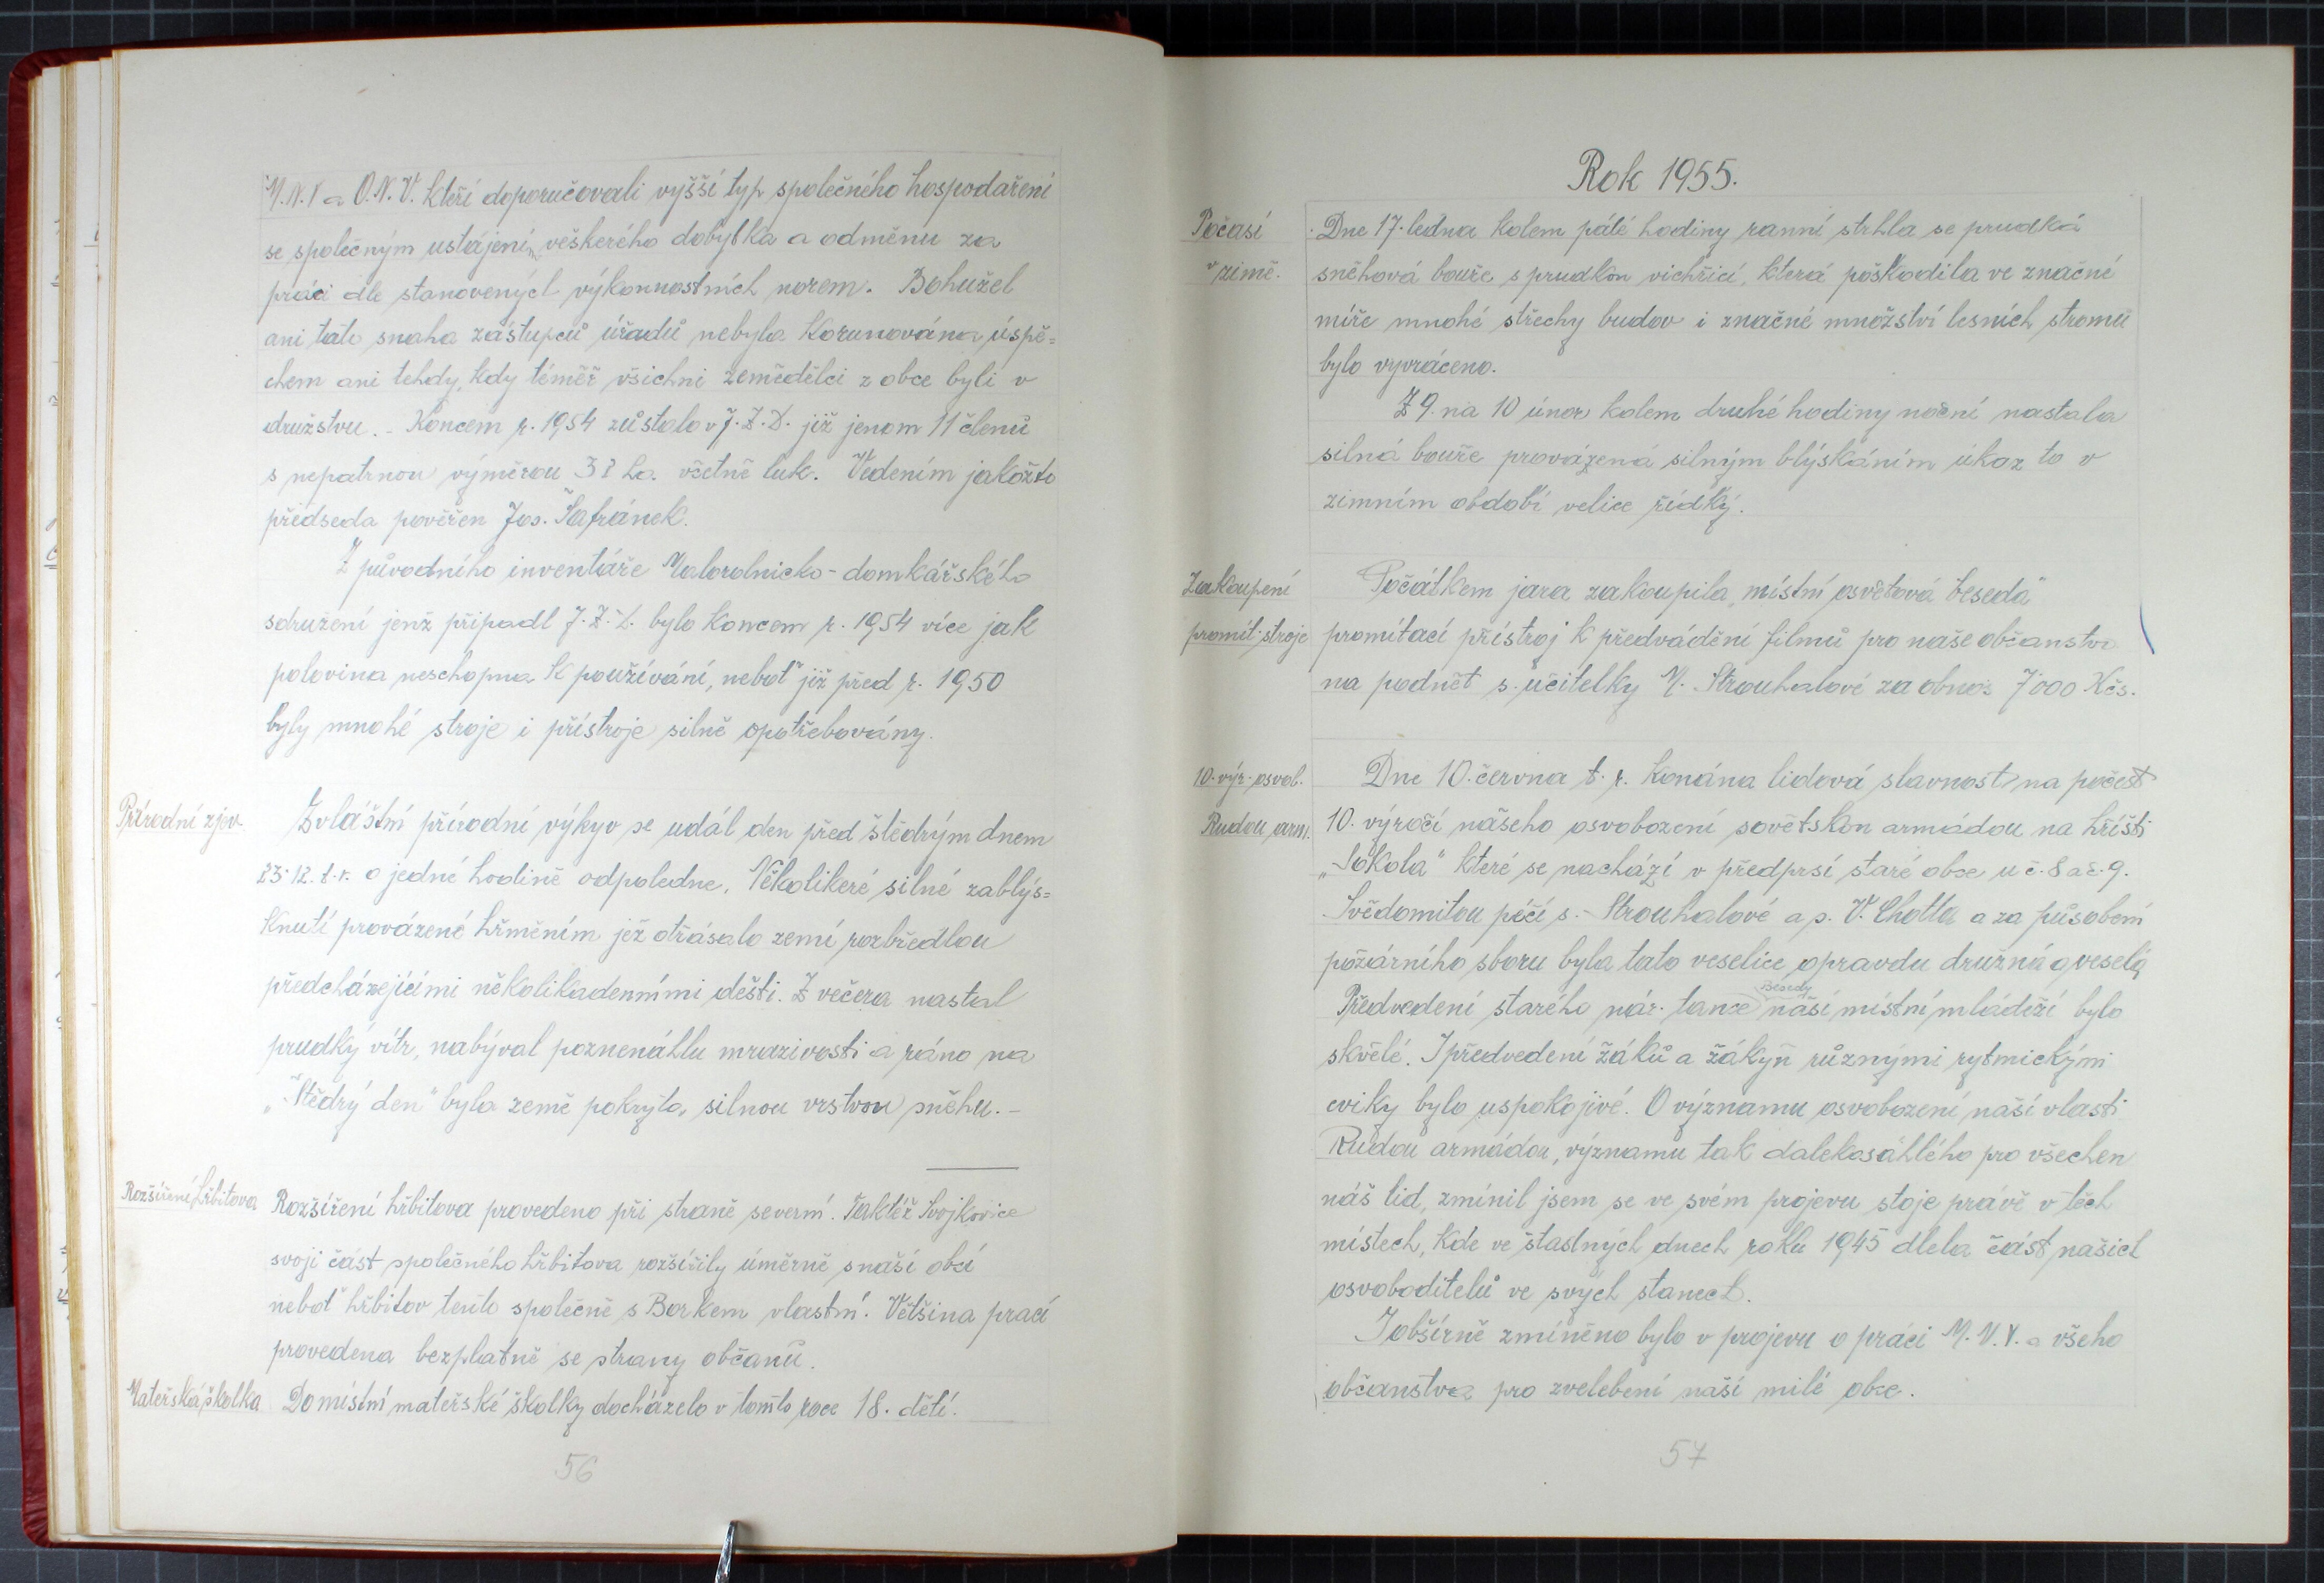 M.N.V a O.N.V. kteří doporučovali vyšší typ společného hospodaření
se společným ustájením veškerého dobytka a odměnu za
práci dle stanovených výkonnostních norem. Bohužel
ani tato snaha zástupců úřadů nebyla korunována úspě=
chem ani tehdy, kdy téměř všichni zemědělci z obce byli v
družstvu. - Koncem r. 1954 zůstalo v J.Z.D. již jenom 11 členů
s nepatrnou výměrou 38 ha. včetně luk. Vedením jakožto
předseda pověřen Jos. Šafránek.
Z původního inventáře Malorolnicko-domkářského
sdružení jenž připadl J.Z.D. bylo koncem r. 1954 více jak
polovina neschopna k používání, neboť již před r. 1950
byly mnohé stroje i přístroje silně opotřebovány.
Přírodní zjev.
Zvláštní přírodní výkyv se udál den před štědrým dnem
23.12.t.r. o jedné hodině odpoledne. Několikeré silné zablýs=
knutí provázené hřměním jež otřásalo zemí rozbředlou
předcházejícími několikadenními dešti. Z večera nastal
prudký vítr, nabýval poznenáhlu mrazivosti a ráno na
„Štědrý den" byla země pokryta silnou vrstvou sněhu. -
Rozšíření hřbitova
Rozšíření hřbitova provedeno při straně severní. Taktéž Svojkovice
svoji část společného hřbitova rozšířily úměrně s naší obcí
neboť hřbitov tento společně s Borkem vlastní. Většina prací
provedena bezplatně se strany občanů.
Mateřská školka
Do místní mateřské školky docházelo v tomto roce 18. dětí.
56
Rok 1955.
Počasí
v zimě.
Dne 17. ledna kolem páté hodiny ranní strhla se prudká
sněhová bouře s prudkou vichřicí, která poškodila ve značné
míře mnohé střechy budov i značné množství lesních stromů
bylo vyvráceno.
Z 9. na 10 únor kolem druhé hodiny noční nastala
silná bouře provázená silným blýskáním úkaz to v
zimním období velice řídký.
Zakoupení
promít. stroje
Počátkem jara zakoupila „místní osvětová beseda"
promítací přístroj k předvádění filmů pro naše občanstvo
na podnět s. učitelky M. Strouhalové za obnos 7'000 Kčs.
10. výr. osvob.
Rudou arm.
Dne 10. června t. r. konána lidová slavnost na počest
10. výročí našeho osvobození sovětskou armádou na hřišti
„Sokola" které se nachází v předprsí staré obce u č. 8 a č. 9.
Svědomitou péčí s. Strouhalové a s. V. Chotta a za působení
požárního sboru byla tato veselice opravdu družná a veselá
Besedy
Předvedení starého nár. tance naší místní mládeží bylo
skvělé. I předvedení žáků a žákyň různými rytmickými
cviky bylo uspokojivé. O významu osvobození naší vlasti
Rudou armádou, významu tak dalekosáhlého pro všechen
náš lid, zmínil jsem se ve svém projevu stoje právě v těch
místech, kde ve šťastných dnech roku 1945 dlela část našich
osvoboditelů ve svých stanech.
I obšírně zmíněno bylo v projevu o práci M.N.V. a všeho
občanstva pro zvelebení naší milé obce.
57